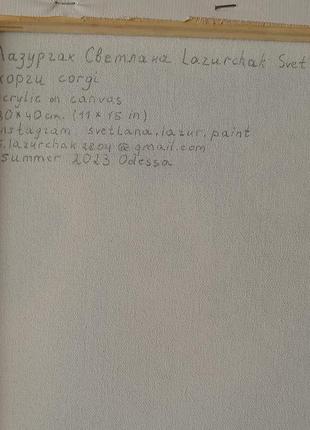 Лазурчак Светлана Lazurchak Svet
корги corgi
crylic on canvas
30×40 cm. (11×15 in)
nstagram svetlana.lazur.paint
s.lazurchak2204@gmail.com
summer 2023 Odessa